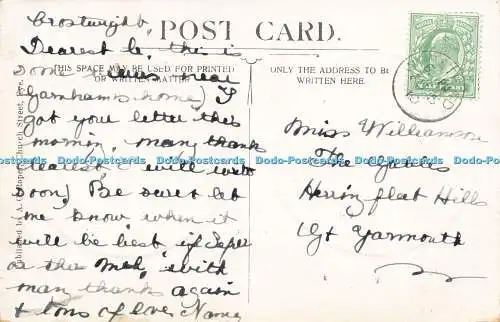 Crostwight.
POST CARD.
Dearest L. this is
THIS SPACE MAY BE USED FOR PRINTED
OR WRITTEN MATTER
some views near
Garnhams home) I
got your letter this
morning, many thanks
dearest I will write
soon) Be sure & let
me know when it
will be best if Sept
or the with
many thanks again
& tons of love Nancy
ONLY THE ADDRESS TO BE
WRITTEN HERE.
Miss Williamson
The Gables
Herring flat Hills
Gt Yarmouth
Published by Church Street,
Dodo-Postcards Dodo-Postcards Dodo-Postcards Dodo-Postcards Dodo-Postcards